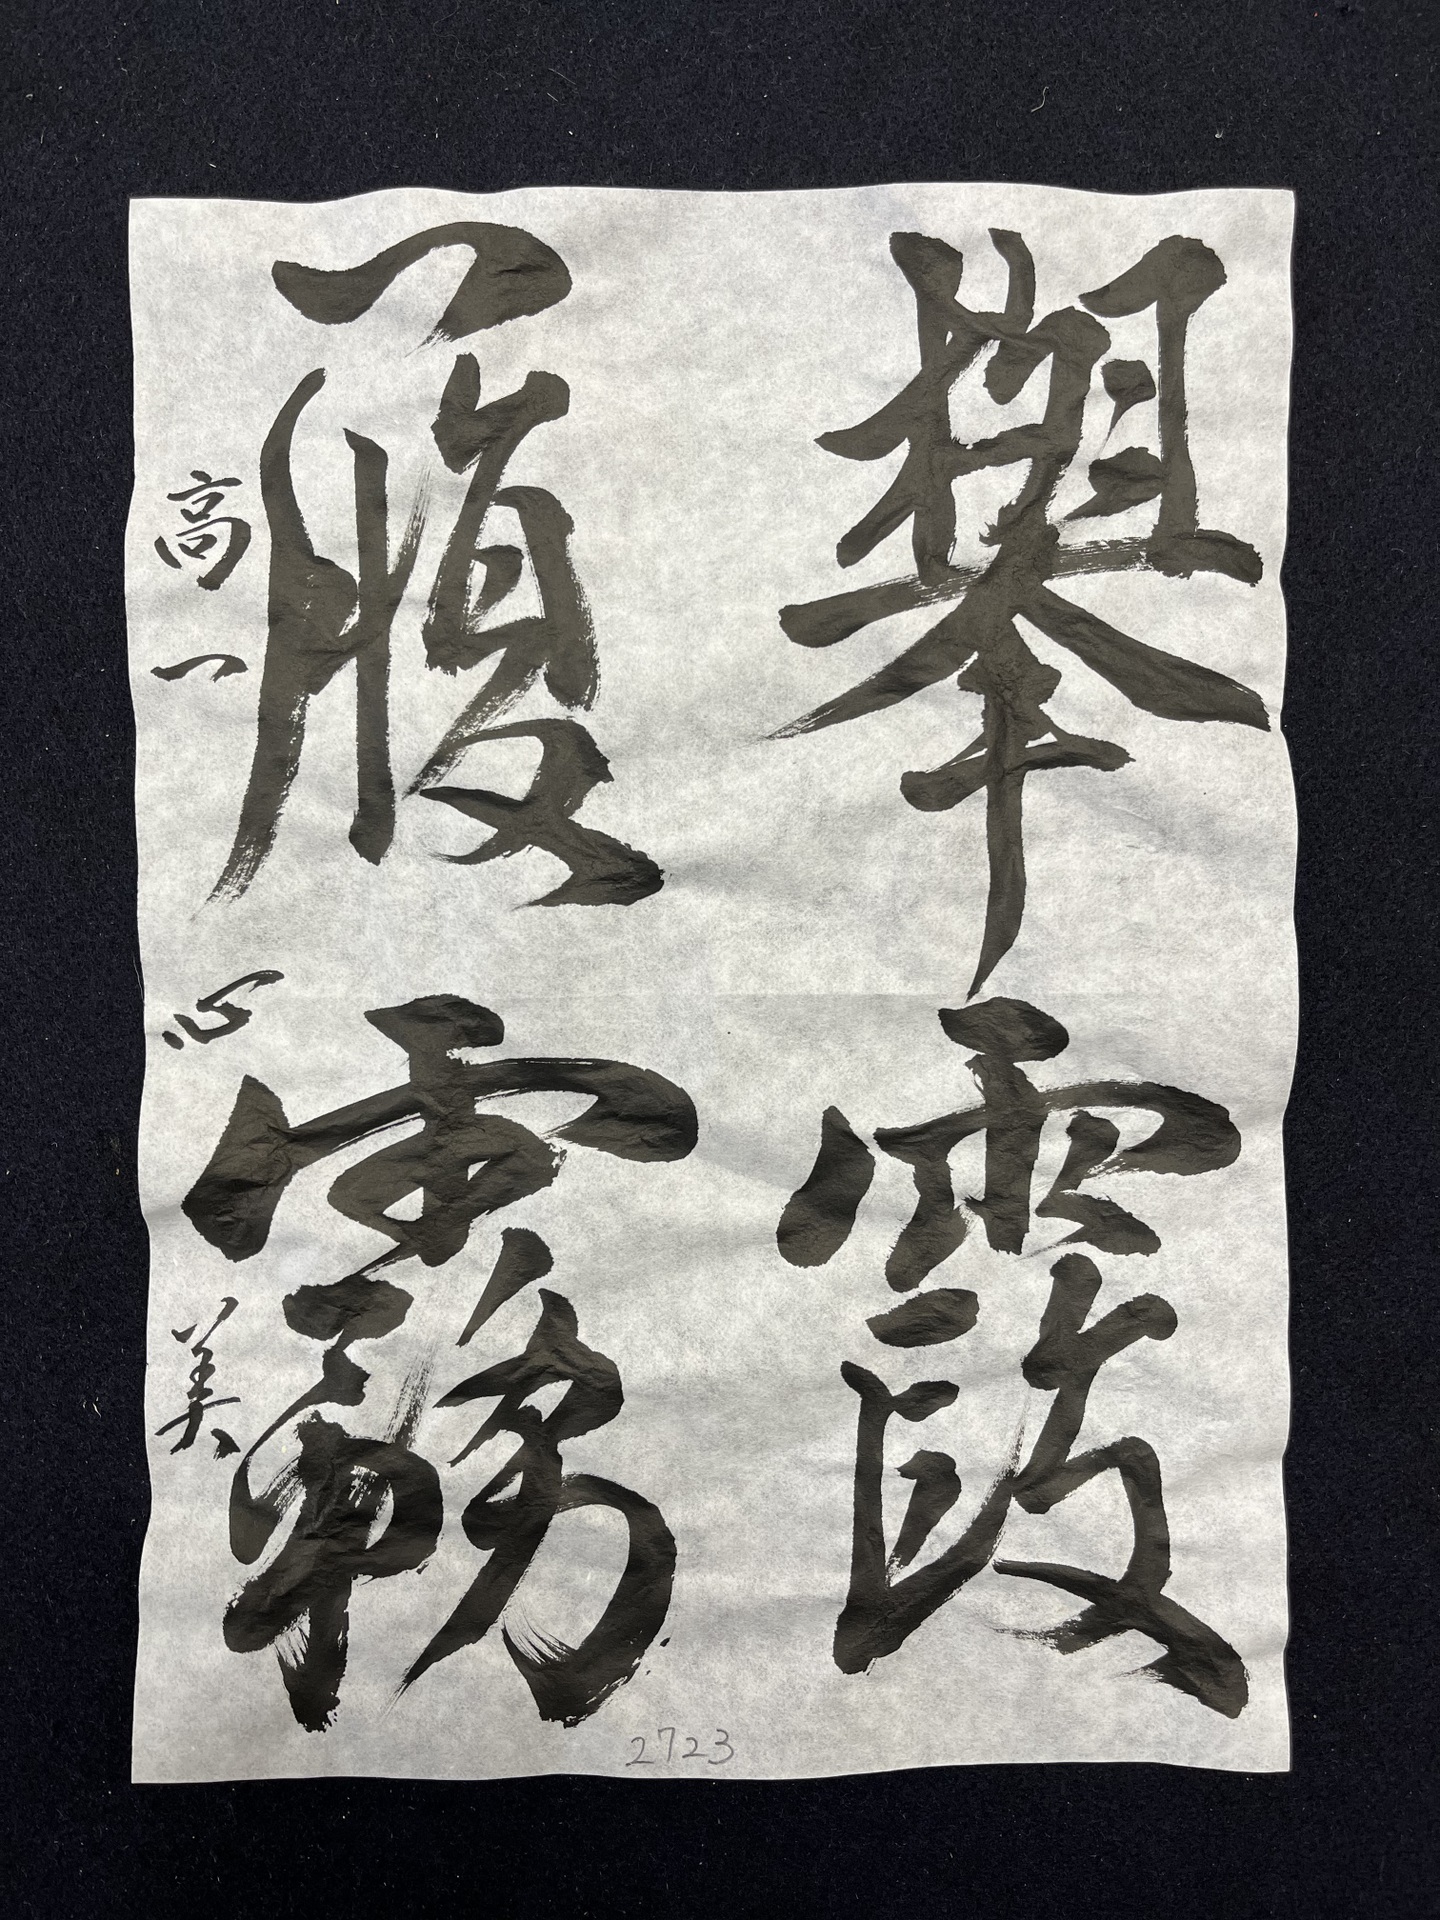 擧霞
腹霧
高一 心美
2723